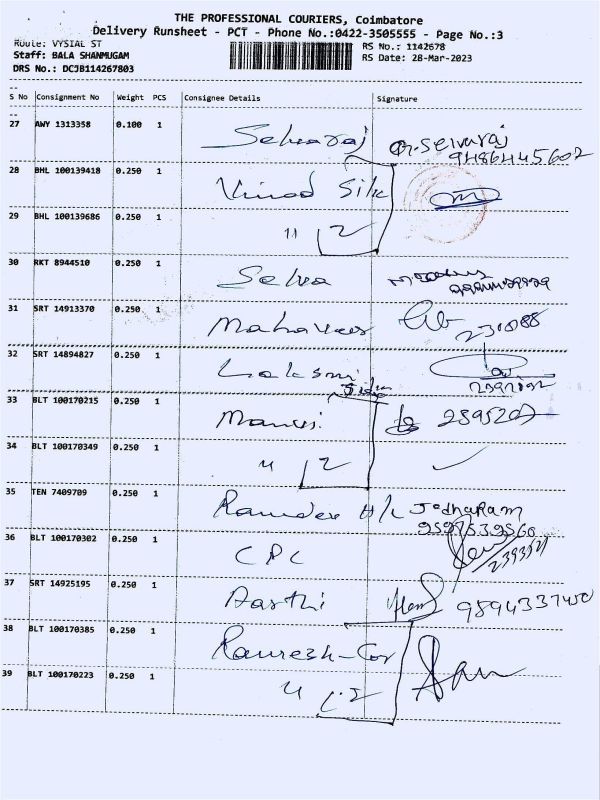 THE PROFESSIONAL COURIERS, Coimbatore
Delivery Runsheet - PCT - Phone No.:0422-3505555 - Page No.:3
Route: VYSIAL ST
Staff: BALA SHANMUGAM
DRS No.: DCJB114267803
RS No.: 1142678
RS Date: 28-Mar-2023
S No Consignment No Weight PCS Consignee Details Signature
27 AWY 1313358 0.100 1 Selvaraj G. Selvaraj
9486445602
28 BHL 100139418 0.250 1 Vinod Silk
29 BHL 100139686 0.250 1 11 2
30 RKT 8944510 0.250 1 Selva
31 SRT 14913370 0.250 1 Mahaveer
32 SRT 14894827 0.250 1 Laksmi
33 BLT 100170215 0.250 1 Manusi
34 BLT 100170349 0.250 1 11 2 ✓
35 TEN 7409709 0.250 1 Ramdev H/L Jodharam
36 BLT 100170302 0.250 1 CPC
37 SRT 14925195 0.250 1 Aarthi 9894337450
38 BLT 100170385 0.250 1 Ramesh-Cor
39 BLT 100170223 0.250 1 11 2